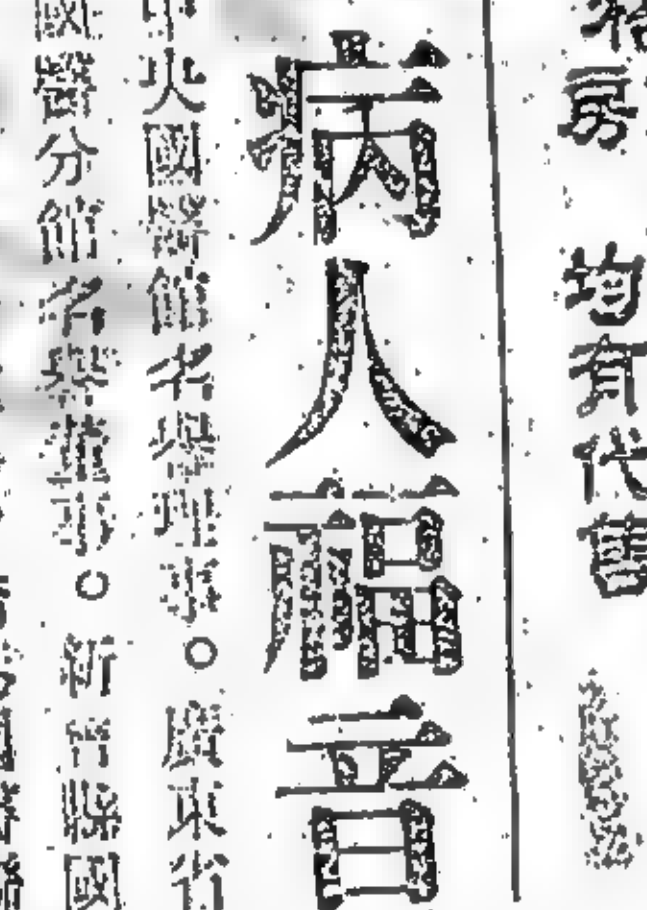 房 均有代售
病人福音
中央國醫館名譽理事。廣東省
國醫分館名譽董事。新會縣國